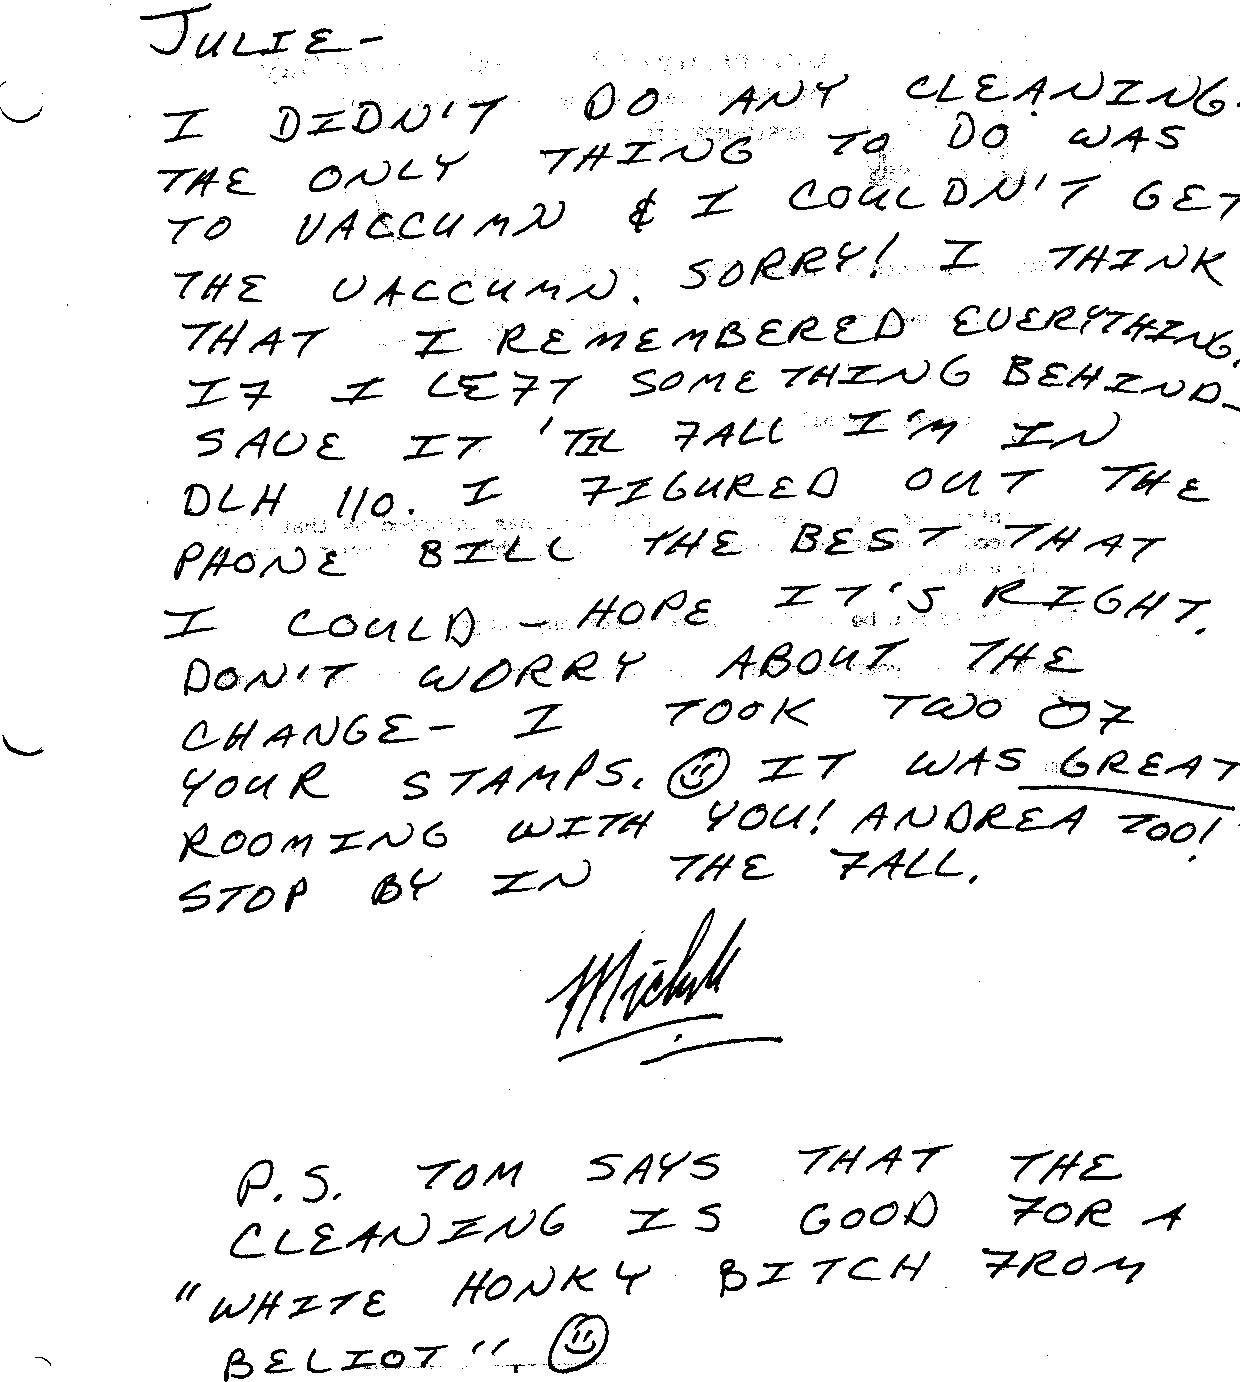 JULIE-
I DIDN'T DO ANY CLEANING.
THE ONLY THING TO DO WAS
TO VACCUMN & I COULDN'T GET
THE VACCUMN. SORRY! I THINK
THAT I REMEMBERED EVERYTHING.
IF I LEFT SOMETHING BEHIND-
SAVE IT 'TIL FALL I'M IN
DLH 110. I FIGURED OUT THE
PHONE BILL THE BEST THAT
I COULD - HOPE IT'S RIGHT.
DON'T WORRY ABOUT THE
CHANGE- I TOOK TWO OF
YOUR STAMPS. ☺ IT WAS GREAT
ROOMING WITH YOU! ANDREA TOO!
STOP BY IN THE FALL.
Michele
P.S. TOM SAYS THAT THE
CLEANING IS GOOD FOR A
"WHITE HONKY BITCH FROM
BELIOT". ☺